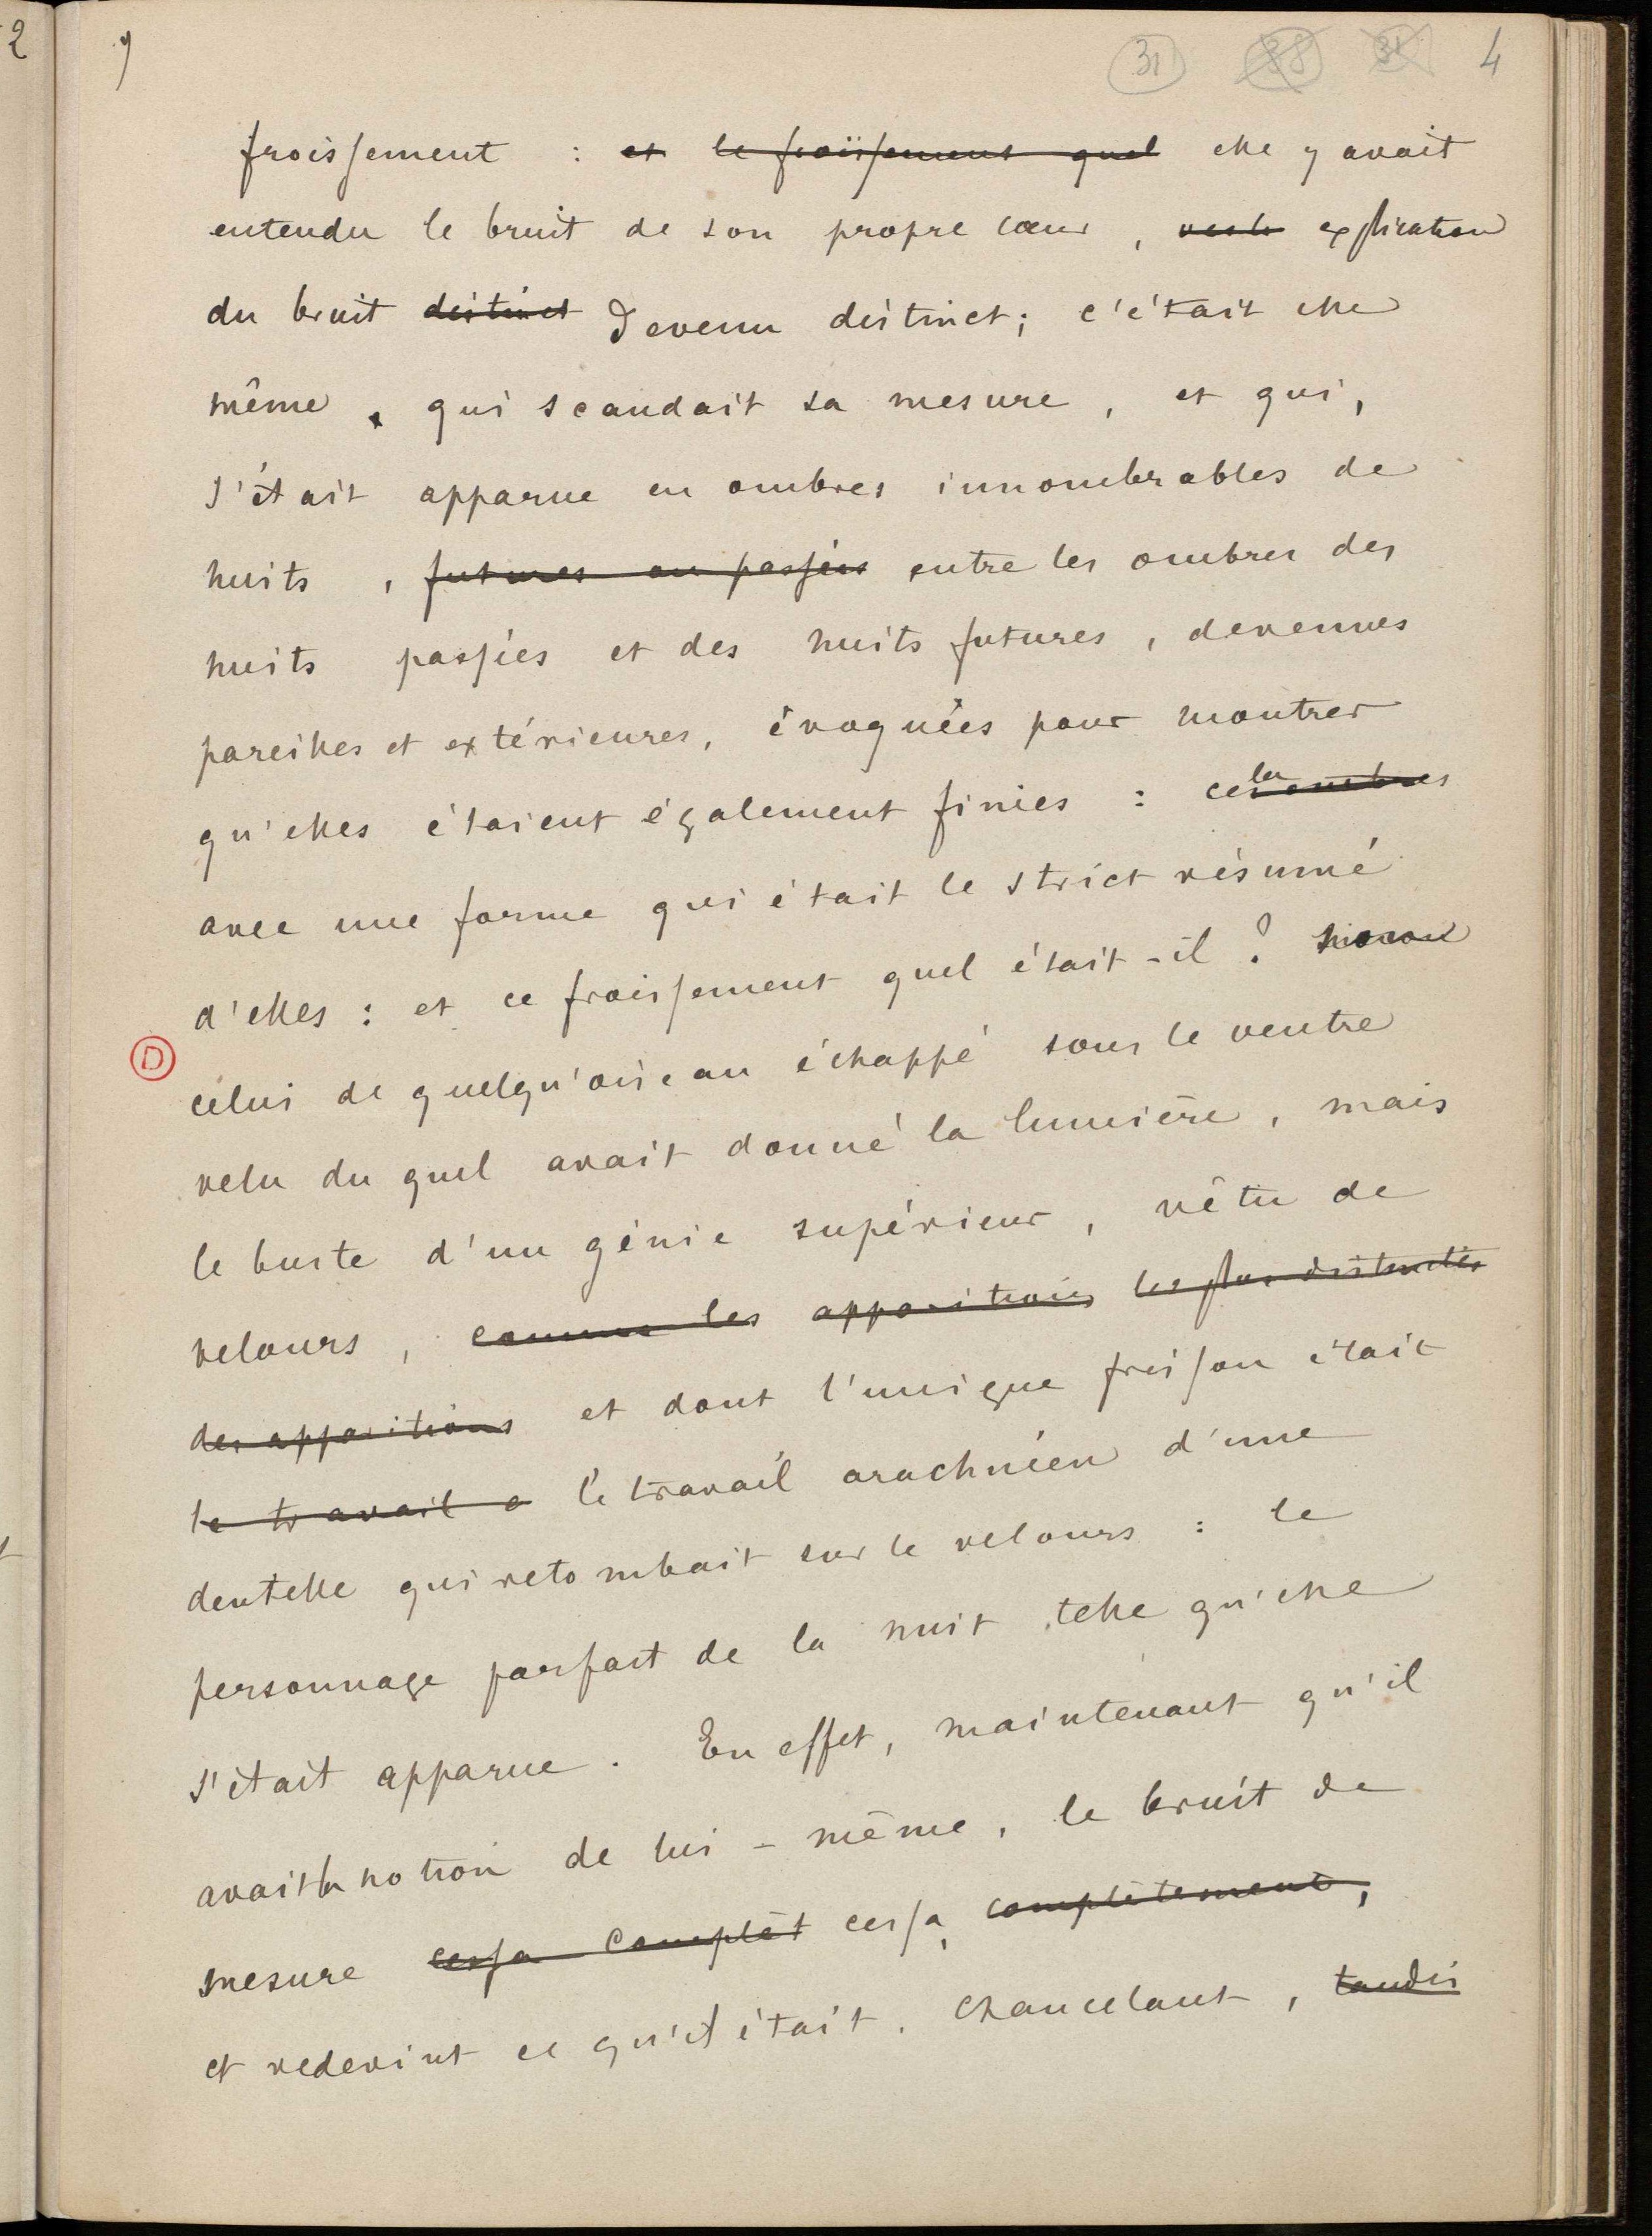 2 9 31 38 31 4
froissement : et le froissement quel elle y avait
entendu le bruit de son propre cœur , explication
du bruit distinct devenu distinct ; c'était elle
même , qui scandait sa mesure , et qui ,
s'était apparue en ombres innombrables de
nuits , futures ou passées entre les ombres des
nuits passées et des nuits futures , devenues
pareilles et extérieures, évoquées pour montrer
la
qu'elles étaient également finies : ces ombres
avec une forme qui était le strict résumé
d'elles : et ce froissement quel était-il ?
D
celui de quelqu'oiseau échappé sous le ventre
velu du quel avait donné la lumière , mais
le buste d'un génie supérieur , vêtu de
velours , comme les apparitions les plus distinctes
des apparitions et dont l'unique frisson était
le travail a le travail arachnéen d'une
dentelle qui retombait sur le velours : le
personnage parfait de la nuit telle qu'elle
s'était apparue . En effet, maintenant qu'il
avait la notion de lui-même , le bruit de
mesure cessa complèt cessa complètement,
et redevint ce qu'il était , chancelant , tandis